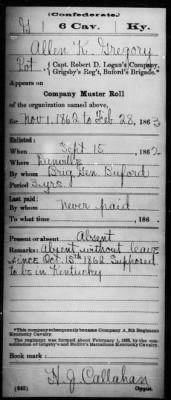 (Confederate.)
G 6 Cav. Ky.
Allen K. Gregory
Pvt., Capt. Robert D. Logan's Company,
Grigsby's Reg't, Buford's Brigade.*
Appears on
Company Muster Roll
of the organization named above,
for Nov 1, 1862 to Feb 28, 1863
Enlisted:
When Sept 15, 1862
Where Danville
By whom Brig Gen Buford
Period 3 yrs.
Last paid:
By whom never paid
To what time , 186 .
Present or absent Absent
Remarks: Absent without leave
since Oct 15th 1862 Supposed
to be in Kentucky
*This company subsequently became Company A, 6th Regiment
Kentucky Cavalry.
The regiment was formed about February 1, 1863, by the con-
solidation of Grigsby's and Battalions Kentucky Cavalry.
Book mark:
(642) H. J. Callahan
Copyist